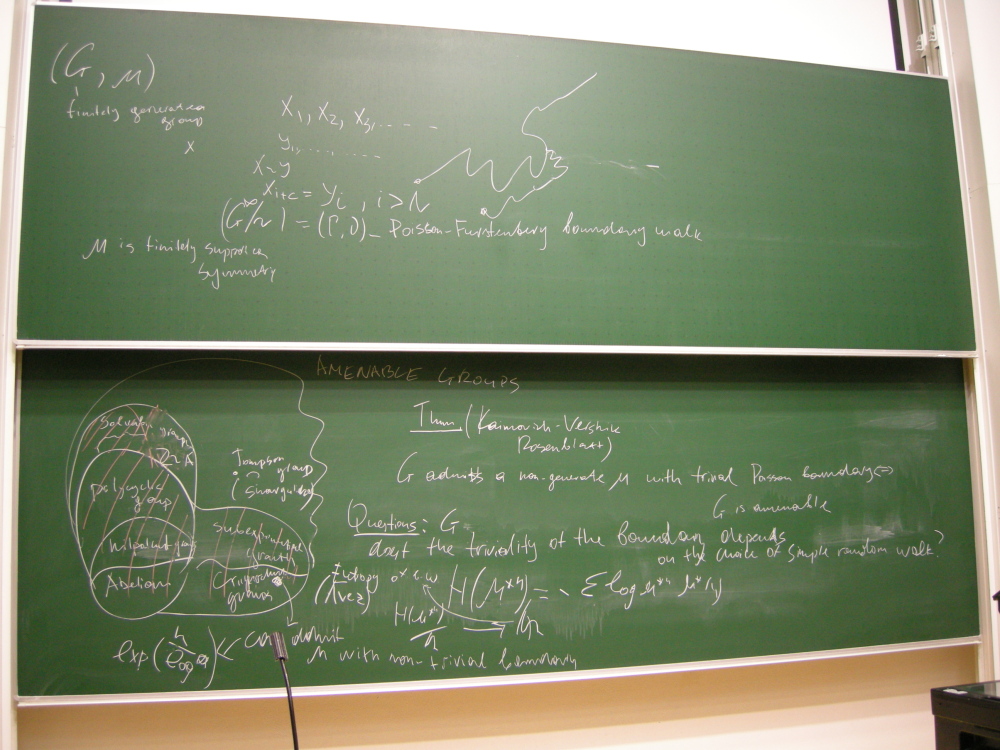 (G, μ)
finitely generated
group
x
X₁, X₂, X₃, . . . . .
y₁, . . . . . . .
X ~ y
X_{i+c} = y_i , i > N
(G^∞/~) = (Γ, ν) - Poisson-Furstenberg boundary walk
μ is finitely supported
symmetry
AMENABLE GROUPS
Thm (Kaimovich-Vershik
Rosenblatt)
G admits a non-generate μ with trivial Poisson boundary ⇔
G is amenable
Questions: G
does the triviality of the boundary depends
on the choice of simple random walk?
Solvable groups
Z≀A
polycyclic
group
Nilpotent
Abelian
Tompson
group
subexponential
growth
Grigorchuk
groups
Entropy of r.w
(Avez)
H(μ*ⁿ) = - Σ log μ*ⁿ
H(μ*ⁿ)/n → h
exp(n/log n) < can admit
μ with non-trivial boundary